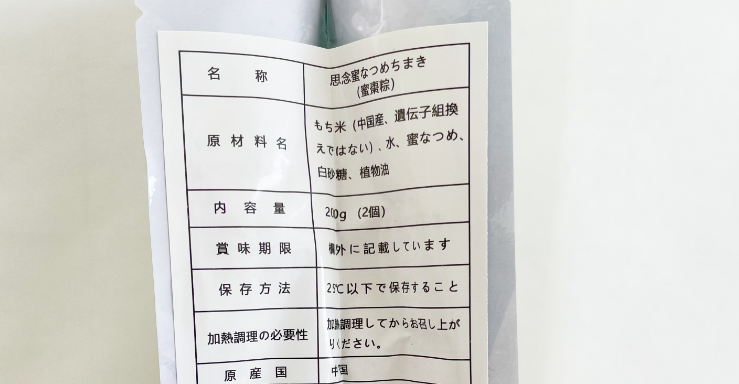 名称
思念蜜なつめちまき
(蜜棗粽)
原材料名
もち米（中国産、遺伝子組換
えではない）、水、蜜なつめ、
白砂糖、植物油
内容量
200g （2個）
賞味期限
欄外に記載しています
保存方法
25℃以下で保存すること
加熱調理の必要性
加熱調理してからお召し上が
りください。
原産国
中国